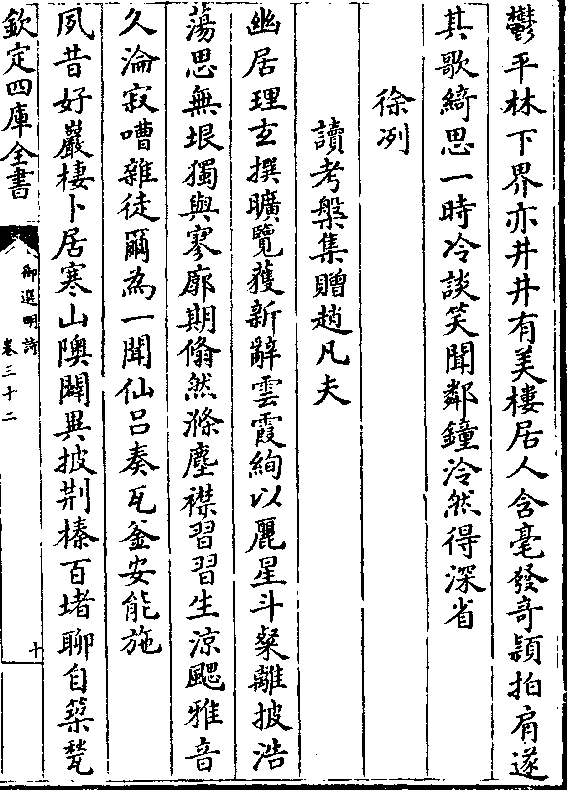 鬱平林下界亦井井有美棲居人含毫發奇頴拍肩遂
其歌綺思一時冷談笑聞鄰鐘泠然得深省
徐冽
讀考槃集贈趙凡夫
幽居理玄撰曠覽獲新辭雲霞絢以麗星斗粲離披浩
蕩思無垠獨與寥廓期翛然滌塵襟習習生凉颸雅音
久淪寂嘈雜徒爾為一聞仙吕奏瓦釜安能施
夙昔好巖棲卜居寒山隩闢異披荆榛百堵聊自築甃
欽定四庫全書
御選明詩
卷三十二
十